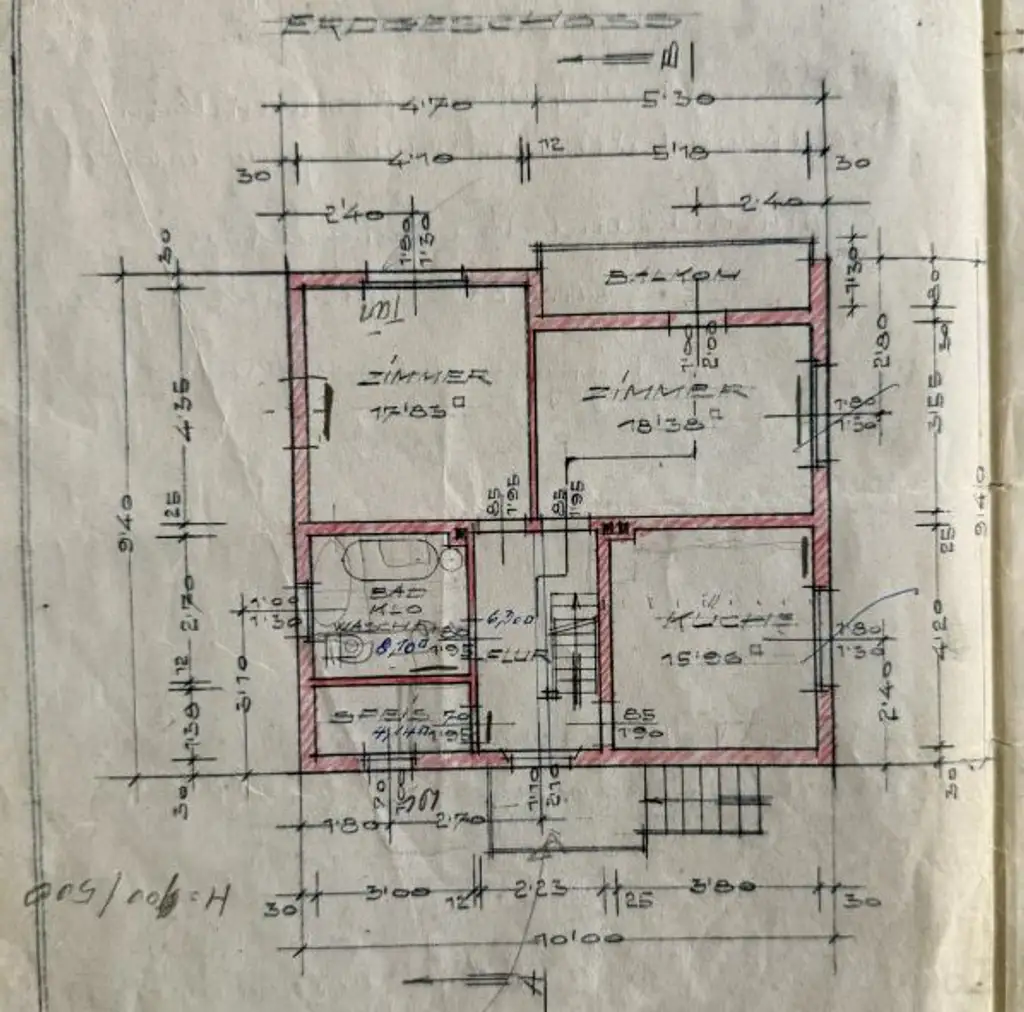 ERDGESCHOSS
B
4'70 5'30
4'10 12 5'18
30 30
2'40 2'40
1'80
1'30
30
BALKON
1'30
80
30
ZIMMER
17'83
1'00
2'00
ZIMMER
18'38
2'80
1'80
1'30
3'55
4'35
9'40
9'40
25
85
1'95
85
1'95
25
BAD
KLO
8,10
1'95
1'00
1'30
2'70
12
3'10
1'38
30
6,30
FLUR
KÜCHE
15'96
1'80
1'30
4'20
2'40
SPEIS
4,14
70
1'95
85
1'90
30
70
1'10
2'10
1'80 2'70
H=400/500
30 3'00 12 2'23 25 3'80 30
10'00
A